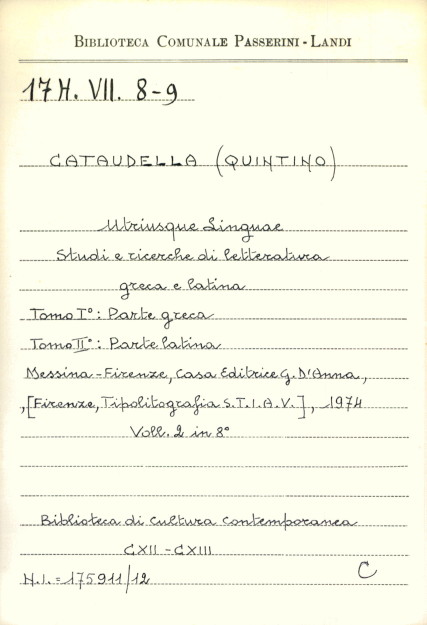 BIBLIOTECA COMUNALE PASSERINI - LANDI
17H. VII. 8-9
CATAUDELLA (QUINTINO)
Utriusque Linguae
Studi e ricerche di letteratura
greca e latina
Tomo I°: Parte greca
Tomo II°: Parte latina
Messina - Firenze, Casa Editrice G. D'Anna,
,[Firenze, Tipolitografia S.T.I.A.V.], 1974
Voll. 2 in 8°
Biblioteca di cultura contemporanea
CXII - CXIII
N.I. = 175911/12
C